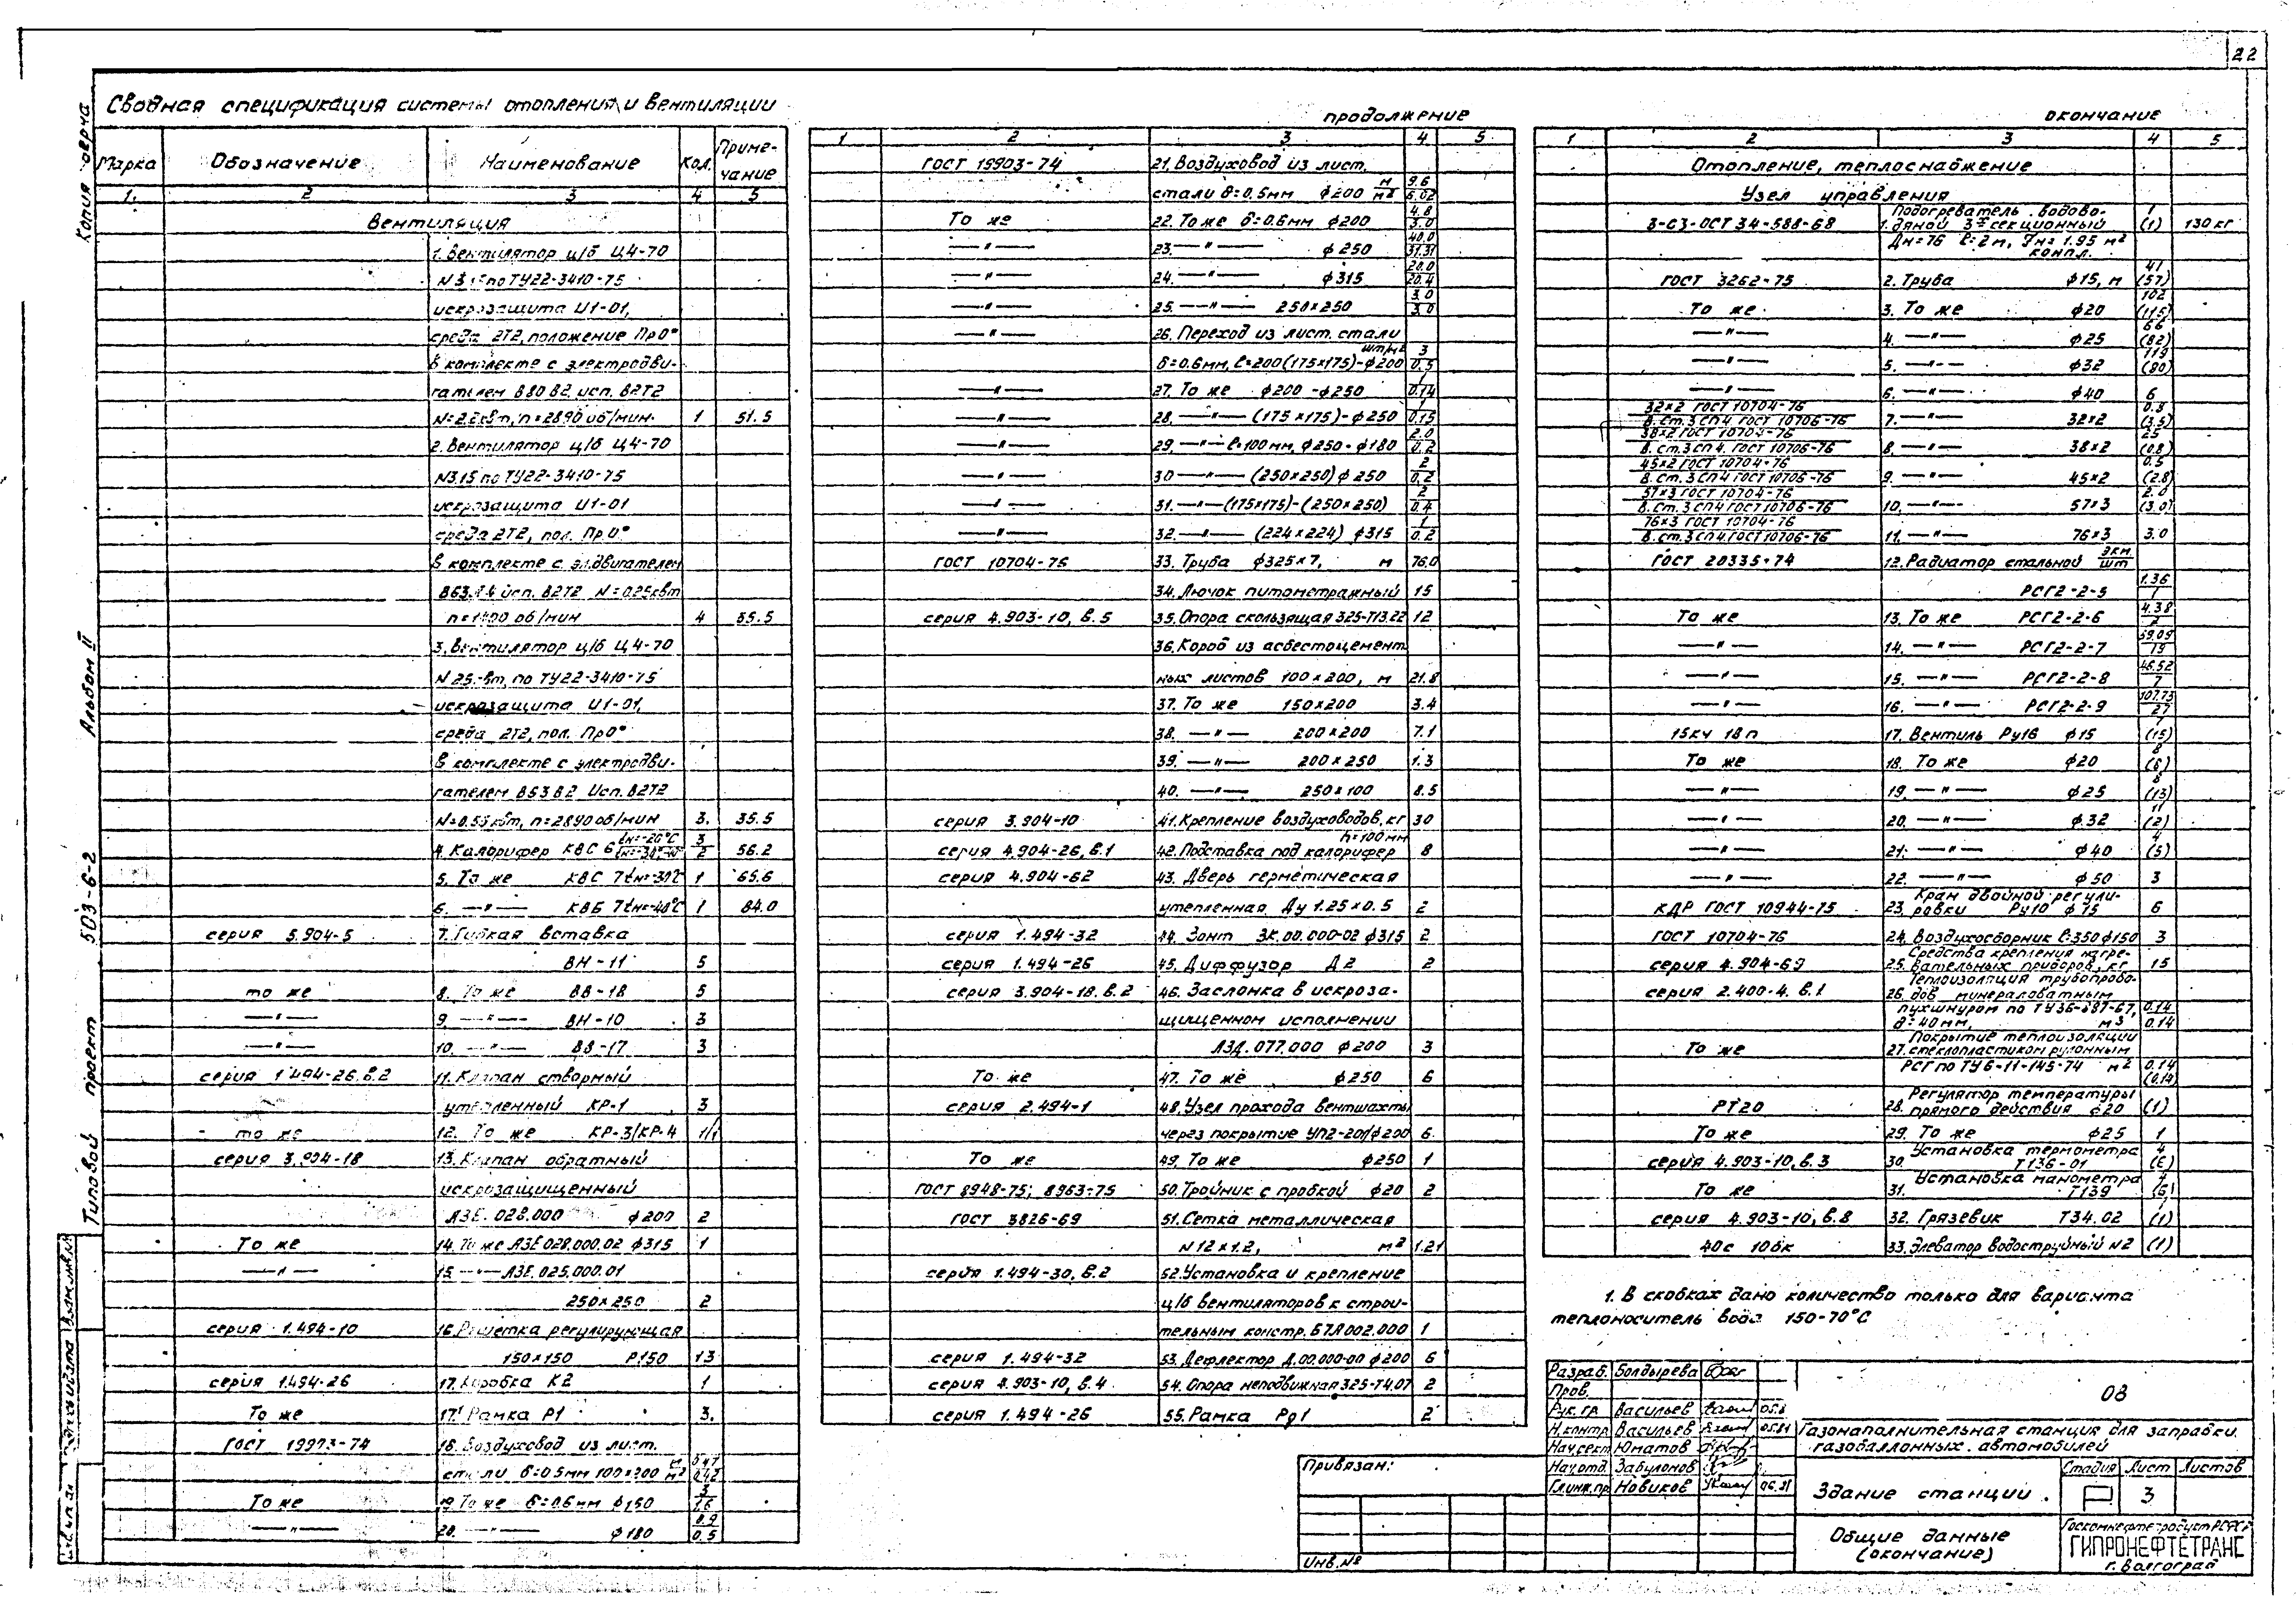 22
Копия верна
Альбом II
503-6-2
Типовой проект
Сводная спецификация системы отопления и вентиляции
Марка | Обозначение | Наименование | Кол. | Приме-
чание
1. | 2 | 3 | 4 | 5
Вентиляция
1. Вентилятор ц/б Ц4-70
по ТУ22-3410-75
искрозащита И1-01,
среда 2Т2, положение Пр0°
в комплекте с электродви-
гателем В80В2, исп. В2Т2
N=2.2квт, n=2890 об/мин. | 1 | 51.5
2. Вентилятор ц/б Ц4-70
N3.15 по ТУ22-3410-75
искрозащита И1-01
среда 2Т2, пол. Пр0°
в комплекте с эл.двигателем
исп. В2Т2 N=0.25квт
n=1400 об/мин | 4 | 35.5
3. Вентилятор ц/б Ц4-70
по ТУ22-3410-75
искрозащита И1-01,
среда 2Т2, пол. Пр0°
в комплекте с электродви-
гателем В63В2 Исп. В2Т2
N=0.55квт, n=2890 об/мин | 3. | 35.5
4. Калорифер КВС 6 | 3/2 | 56.2
5. То же КВС 7 tн=-30°С | 1 | 65.6
6. —"— КВБ 7 tн=-40°С | 1 | 84.0
серия 5.904-5 | 7. Гибкая вставка
ВН-11 | 5
то же | 8. То же ВВ-18 | 5
—"— | 9. —"— ВН-10 | 3
—"— | 10. —"— ВВ-17 | 3
серия 1.494-26.в.2 | 11. Клапан створный
утепленный КР-1 | 3
то же | 12. То же КР-3/КР-4 | 1/1
серия 3.904-18 | 13. Клапан обратный
искрозащищенный
АЗЕ. 028.000 ф200 | 2
То же | 14. То же АЗЕ 028.000.02 ф315 | 1
—"— | 15 —"— АЗЕ.025.000.01
250×250 | 2
серия 1.494-10 | 16. Решетка регулирующая
150×150 Р150 | 13
серия 1.494-26 | 17. Коробка К2 | 1
То же | 17¹ Рамка Р1 | 3.
ГОСТ 19903-74 | 18. Воздуховод из лист.
стали б=0.5мм 100×200 м/м²
То же | 19. То же б=0.6мм ф150 | 3/1.6
—"— | 20. —"— ф180 | 0.9/0.5
продолжение
1 | 2 | 3 | 4 | 5
ГОСТ 19903-74 | 21. Воздуховод из лист.
стали б=0.5мм ф200 м/м² | 9.6/6.02
То же | 22. То же б=0.6мм ф200 | 4.8/3.0
—"— | 23 —"— ф250 | 40.0/31.31
—"— | 24. —"— ф315 | 20.0/20.4
—"— | 25. —"— 250×250 | 3.0/3.0
—"— | 26. Переход из лист. стали
б=0.6мм, ℓ=200 (175×175)-ф200 шт/м² | 3/0.5
—"— | 27. То же ф200-ф250 | 1/0.14
—"— | 28. —"— (175×175)-ф250 | 1/0.15
—"— | 29. —"— ℓ=100мм, ф250-ф180 | 2.0/0.2
—"— | 30 —"— (250×250) ф250 | 2/0.2
—"— | 31. —"— (175×175)-(250×250) | 2/0.4
—"— | 32. —"— (224×224) ф315 | 1/0.2
ГОСТ 10704-76 | 33. Труба ф325×7, м | 76.0
34. Лючок питометражный | 15
серия 4.903-10, в.5 | 35. Опора скользящая 325-Т13.22 | 12
36. Короб из асбестоцемент
ных листов 100×200, м | 21.8
37. То же 150×200 | 3.4
38. —"— 200×200 | 7.1
39. —"— 200×250 | 1.3
40. —"— 250×100 | 8.5
серия 3.904-10 | 41. Крепление воздуховодов, кг | 30
серия 4.904-26, в.1 | 42. Подставка под калорифер h=100мм | 8
серия 4.904-62 | 43. Дверь герметическая
утепленная Ду 1.25×0.5 | 2
серия 1.494-32 | 44. Зонт ЗК.00.000-02 ф315 | 2
серия 1.494-26 | 45. Диффузор Д2 | 2
серия 3.904-18.в.2 | 46. Заслонка в искроза-
щищенном исполнении
АЗД.077.000 ф200 | 3
То же | 47. То же ф250 | 6
серия 2.494-1 | 48. Узел прохода вентшахты
через покрытие УП2-201/ф200 | 6.
То же | 49. То же ф250 | 1
ГОСТ 8948-75; 8963-75 | 50. Тройник с пробкой ф20 | 2
ГОСТ 3826-69 | 51. Сетка металлическая
N12×1.2, м² | 1.21
серия 1.494-30, в.2 | 52. Установка и крепление
ц/б вентиляторов к строи-
тельным констр. Б7А002.000 | 1
серия 1.494-32 | 53. Дефлектор Д.00.000-00 ф200 | 6
серия 4.903-10, в.4 | 54. Опора неподвижная 325-Т4.07 | 2
серия 1.494-26 | 55. Рамка Рд1 | 2
окончание
1 | 2 | 3 | 4 | 5
Отопление, теплоснабжение
Узел управления
3-63-ОСТ 34-588-68 | Подогреватель водово-
1. дяной 3х секционный | 1 (1) | 130 кг
Дн=76 ℓ=2м, Fн=1.95 м²
компл.
ГОСТ 3262-75 | 2. Труба ф15, м | 41 (57)
То же | 3. То же ф20 | 102 (115)
—"— | 4. —"— ф25 | 66 (82)
—"— | 5. —"— ф32 | 119 (90)
—"— | 6. —"— ф40 | 6
32×2 ГОСТ 10704-76
В. Ст.3 СП4 ГОСТ 10706-76 | 7. —"— 32×2 | 0.8 (3.5)
38×2 ГОСТ 10704-76
В. Ст.3 СП4. ГОСТ 10706-76 | 8. —"— 38×2 | 25 (0.8)
45×2 ГОСТ 10704-76
В. Ст.3 СП4 ГОСТ 10706-76 | 9. —"— 45×2 | 0.5 (2.8)
57×3 ГОСТ 10704-76
В. Ст.3 СП4 ГОСТ 10706-76 | 10. —"— 57×3 | 2.0 (3.0)
76×3 ГОСТ 10704-76
В. Ст.3 СП4. ГОСТ 10706-76 | 11. —"— 76×3 | 3.0
ГОСТ 20335-74 | 12. Радиатор стальной экм/шт
РСГ2-2-5 | 1.36/1
То же | 13. То же РСГ2-2-6 | 4.38/2
—"— | 14. —"— РСГ2-2-7 | 59.09/19
—"— | 15. —"— РСГ2-2-8 | 46.52/7
—"— | 16. —"— РСГ2-2-9 | 107.73/27
15кч 18п | 17. Вентиль Ру16 ф15 | 7 (15)
То же | 18. То же ф20 | 8 (6)
—"— | 19. —"— ф25 | 8 (13)
—"— | 20. —"— ф32 | 11 (2)
—"— | 21. —"— ф40 | 4 (5)
—"— | 22. —"— ф50 | 3
КДР ГОСТ 10944-75 | Кран двойной регули-
23. ровки Ру10 ф15 | 6
ГОСТ 10704-76 | 24. Воздухосборник ℓ=350 ф150 | 3
серия 4.904-69 | Средства крепления нагре-
25. вательных приборов, кг | 15
серия 2.400-4. в.1 | Теплоизоляция трубопрово-
26. дов минераловатным
пухшнуром по ТУ36-887-67,
б=40мм, м³ | 0.14/0.14
То же | Покрытие теплоизоляции
27. стеклопластиком рулонным
РСГ по ТУ6-11-145-74 м² | 0.14 (0.14)
РТ20 | Регулятор температуры
28. прямого действия ф20 | (1)
То же | 29. То же ф25 | 1
серия 4.903-10, в.3 | 30. Установка термометра
Т136-01 | 4 (6)
То же | 31. Установка манометра
Т139 | 4 (6)
серия 4.903-10, в.8 | 32. Грязевик Т34.02 | (1)
40с 10бк | 33. Элеватор водоструйный N2 | (1)
1. В скобках дано количество только для варианта
теплоноситель вода 150-70°С
Разраб. Болдырева
Пров.
Рук. гр. Васильев
Н.контр. Васильев 05.81
Нач.сект. Юматов
Нач.отд. Забулонов
Гл.инж.пр. Новиков 06.81
ОВ
Газонаполнительная станция для заправки
газобаллонных автомобилей
Здание станции.
Стадия | Лист | Листов
Р | 3
Общие данные
(окончание)
Госкомнефтепродукт РСФСР
ГИПРОНЕФТЕТРАНС
г. Волгоград
Привязан:
Инв. №
Взам. инв. №
Подпись и дата